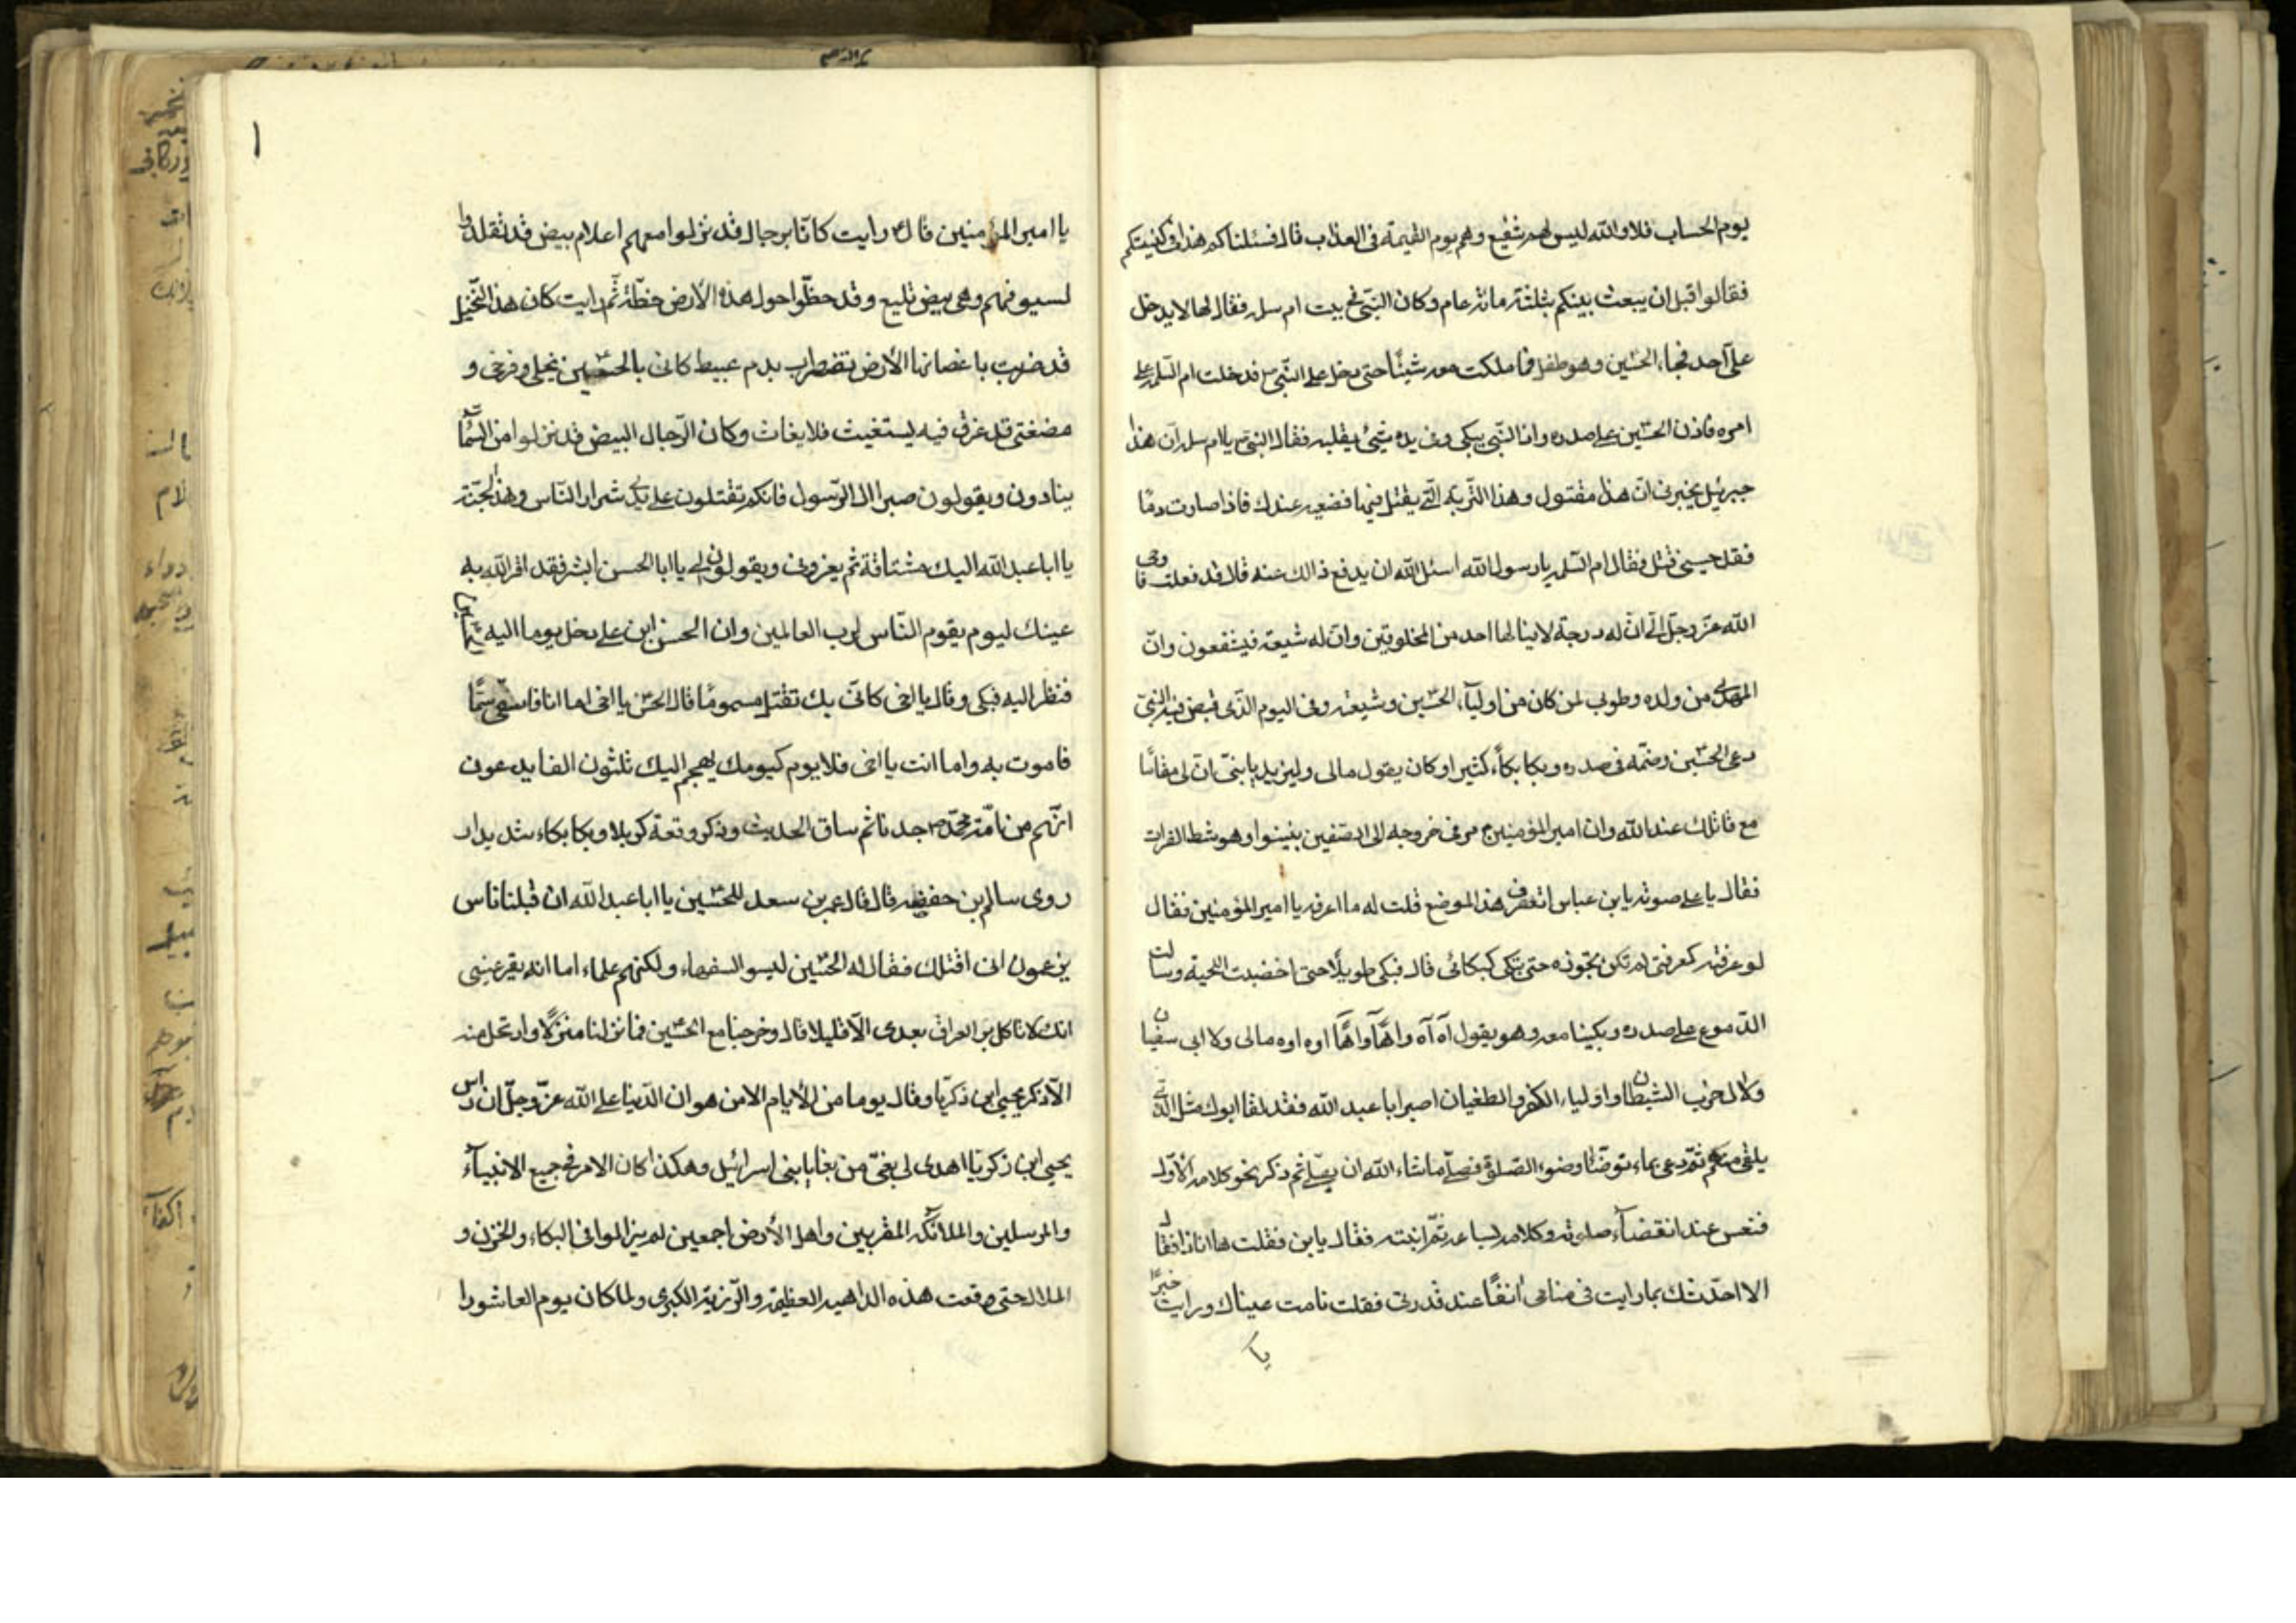 يوم الحساب فلا والله ليس لهم شفيع وهم يوم القيمة فى العذاب قال فسئلناكم هذا فى كنيستكم
فقالوا قبل ان يبعث بينكم بثلثة مائة عام وكان النبى فى بيت ام سلمه فقال لها لا يدخل
على احد فجاء الحسين وهو طفل فما ملكت معه شيئًا حتى دخل على النبى فدخلت ام السلمه على
امره فاذن الحسين على صدره واذا النبى يبكى وفى يده شئ يقلبه فقال النبى يا ام سلمه ان هذا
جبرئيل يخبرنى ان هذا مقتول وهذا التربه التى يقتل فيها فضعيه عندك فاذا صارت دمًا
فقد حبيبى قتل فقال ام السلمه يا رسول الله اسئل الله ان يدفع ذالك عنه قال قد فعلت فاوحى
الله عز وجل الى ان له درجة لا ينالها احد من المخلوقين وان له شيعته فيشفعون وان
المهدى من ولده وطوبى لمن كان من اوليآء الحسين وشيعته وفى اليوم الذى قبض فيه النبى
دعى الحسين وضمه فى صدره وبكا بكاًء كثيرا وكان يقول مالى وليزيد يا بنى ان لى مقامًا
مع قاتلك عند الله وان امير المؤمنين ع مر فى خروجه الى الصفين بنينوا وهو شط الفرات
فقال يا على صوته يا بن عباس اتعرف هذا الموضع قلت له ما اعرفه يا امير المؤمنين فقال
لو عرفته كمعرفتى لم تكن تجوزه حتى تبكى كبكائى قال فبكى طويلًا حتى اخضبت اللحية وسالت
الدموع على صدره وبكينا معه وهو يقول آه آه واهًا واهًا اوه اوه مالى ولا ابى سفيان
ولال حزب الشيطان واولياء الكفر والطغيان اصبر ابا عبد الله فقد لقا ابوك مثل الذى
يلقى منكم ثم دعى بماء توضئا وضوء الصلوة فصلى ماشاء الله ان يصلى ثم ذكر نحو كلامه الاول
فنعس عند انقضآء صلوته وكلامه لساعه ثم انتبه فقال يابن فقلت ها انا ذا فقال
الا احدثك بما رايت فى منامى انفًا عند قدرتى فقلت نامت عيناك ورايت خيرًا
يا
١
يا امير المؤمنين قال رايت كانا برجال قد نزلوا معهم اعلام بيض قد تقلدوا
لسيوفهم وهى بيض تلمع وقد حظوا حول هذه الارض خظة ثم رايت كان هذ النخيل
قد ضربت باغصانها الأرض تضطرب بدم عبيط كانى بالحسين نجلى وفرخى و
مضغتى قد غرق فيه يستغيث فلا يغاث وكان الرجال البيض قد نزلوا من السمآء
ينادون ويقولون صبرا ال الرسول فانكم تقتلون على يدى شرار الناس وهذا الجنة
يا ابا عبد الله اليك مشتاقة ثم يعزونى ويقولون لى يا ابا الحسن ابشر فقد اقر الله به
عينك ليوم يقوم الناس لرب العالمين وان الحسن ابن على دخل يوما اليه
فنظر اليه فبكى وقال يا اخى كانى بك تقتل مسمومًا قال الحسن يا اخى اما انا فاسقى سمًا
فاموت به واما انت يا اخى فلا يوم كيومك يهجم اليك ثلثون الفا يدعون
انهم من نامة محمد ص جدنا ثم ساق الحديث وذكر وقعة كربلا وبكا بكاء شديدا
روى سالم بن حفضه قال قال عمر بن سعد للحسين يا ابا عبد الله ان قبلنا ناس
يزعمون انى اقتلك فقال له الحسين ليسو السفهاء ولكنهم علماء اما انه يقر عينى
انك لا تاكل بر العراق بعدى الا قليلا قال وخرجنا مع الحسين فما نزلنا منزلًا وارتحل منه
الا ذكر يحيى ابن ذكريا وقال يوما من الأيام الا من هوان الدنيا على الله عز وجل ان راس
يحيى ابن ذكريا اهدى لى بغى من بغايا بنى اسرائيل وهكذا كان الامر فى جميع الانبيآء
والمرسلين والملائكه المقربين واهل الأرض اجمعين لم يزالوا فى البكاء والحزن و
الملال حتى وقعت هذه الداهيه العظيمه والرزية الكبرى ولما كان يوم العاشورا